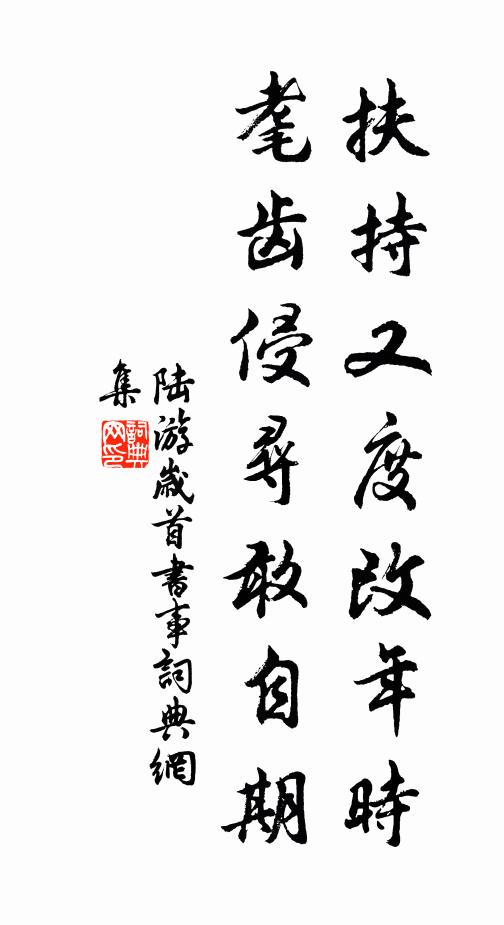 扶持又度改年時
耄齒侵尋敢自期
陆游歲首書事詞典網
集
詞典
网印